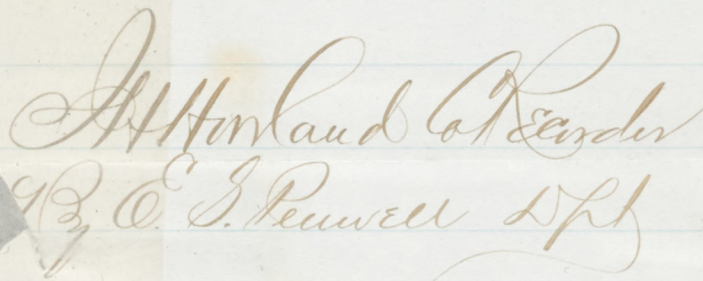 A H Howland Co Recorder
By E. S. Penwell Dpt